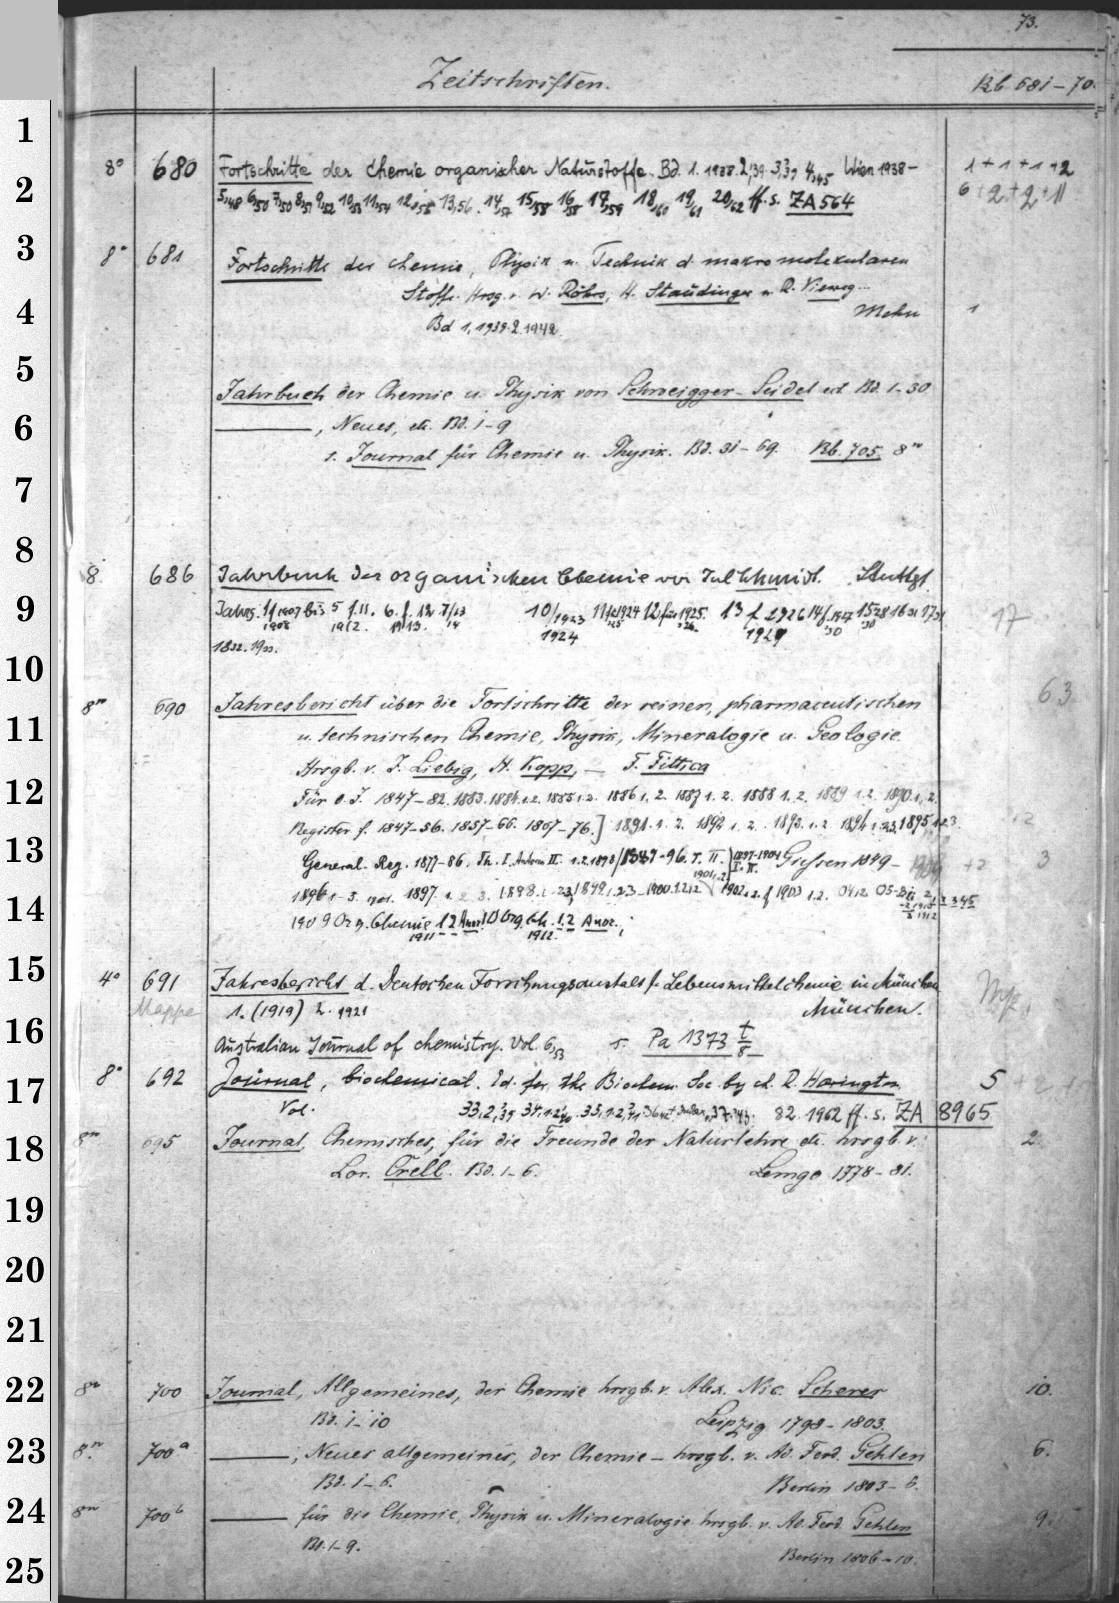 73.
Zeitschriften. Bb 681-70.
1
8° 680 Fortschritte der Chemie organischer Naturstoffe. Bd. 1. 1938. 2,39. 3,39 4,45 Wien 1938- 1+1+1+2
2
5,48 6,50 7,50 8,51 9,52 10,53 11,54 12,55 13,56. 14,57 15,58 16,58 17,59 18,60 19,61 20,62 ff. s. ZA 564 6+2+2+11
3
8° 681 Fortschritte der Chemie, Physik u. Technik d. makromolekularen
Stoffe. Hrsg. v. W. Röhrs, H. Staudinger u. R. Vieweg.
4
1
Bd 1, 1939. 2. 1942.
5
Jahrbuch der Chemie u. Physik von Schweigger-Seidel ed. Bd. 1-30
6
, Neues, etc. Bd. 1-9
s. Journal für Chemie u. Physik. Bd. 31-69. Bb. 705. 8°
7
8
8 686 Jahrbuch der organischen Chemie von Jul Schmidt. Stuttgt
9
10/1923 1924 17
10
8° 690 Jahresbericht über die Fortschritte der reinen, pharmaceutischen 63
11
u. technischen Chemie, Physik, Mineralogie u. Geologie.
Hrsgb. v. J. Liebig, H. Kopp, — F. Fittica
12
Für d. J. 1847-82. 1883. 1884. 1.2. 1885 1.2. 1886 1.2. 1887 1.2. 1888 1.2. 1889 1.2. 1890. 1.2.
Register f. 1847-56. 1857-66. 1867-76.] 1891. 1.2. 1892 1.2. 1893. 1.2 1894 1.2.3. 1895 1.2.3.
13
General. Reg. 1877-86. Th. I. II. 1887-96. T. II. Giessen 1849- 3
14
1909 Org. Chemie 1 2 Anor. 10 Org. Ch. 1.2 Anor.
1911 1912
15
4° 691 Jahresbericht d. Deutschen Forschungsanstalt f. Lebensmittelchemie in München
Mappe 1. (1919) 2. 1921 München.
16
Australian Journal of chemistry. Vol. 6,53 s. Pa 1373 t/8
17
8° 692 Journal, biochemical. Ed. for the Biochem. Soc. by ch. R. Harington 5
Vol. 82. 1962 ff. s. ZA 8965
18
8° 695 Journal, Chemisches, für die Freunde der Naturlehre etc. hrsgb. v. 2.
Lor. Crell. Bd. 1-6. Lemgo 1778-81.
19
20
21
22
8° 700 Journal, Allgemeines, der Chemie hrsgb. v. Alex. Nic. Scherer 10.
Bd. 1-10 Leipzig 1798-1803.
23
8° 700a , Neues allgemeines, der Chemie - hrsgb. v. Ad. Ferd. Gehlen 6.
Bd. 1-6. Berlin 1803-6.
24
8° 700b für die Chemie, Physik u. Mineralogie hrsgb. v. Ad. Ferd. Gehlen 9.
Bd. 1-9. Berlin 1806-10.
25